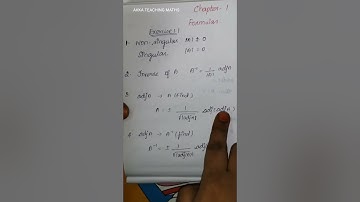 AKKA TEACHING MATHS
Chapter - 1
Formulas
Exercise 1.1
1. Non-singular |A| ≠ 0
Singular |A| = 0
2. Inverse of A A⁻¹ = 1/|A| adjA
3. adjA → A (find)
A = ± 1/√|adjA| adj(adjA)
4. adjA → A⁻¹ (find)
A⁻¹ = ± 1/√|adjA| adjA